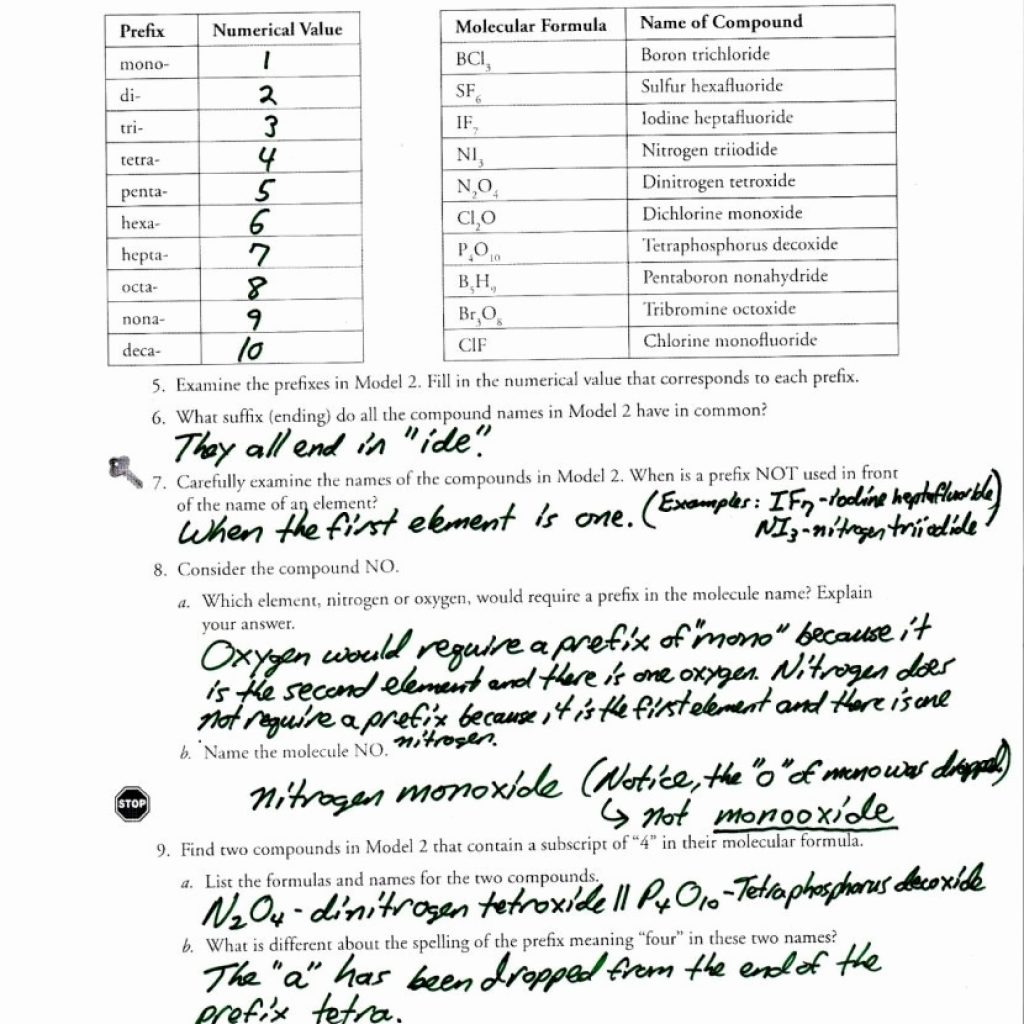 Prefix Numerical Value
mono- 1
di- 2
tri- 3
tetra- 4
penta- 5
hexa- 6
hepta- 7
octa- 8
nona- 9
deca- 10
Molecular Formula Name of Compound
BCl₃ Boron trichloride
SF₆ Sulfur hexafluoride
IF₇ Iodine heptafluoride
NI₃ Nitrogen triiodide
N₂O₄ Dinitrogen tetroxide
Cl₂O Dichlorine monoxide
P₄O₁₀ Tetraphosphorus decoxide
B₅H₉ Pentaboron nonahydride
Br₃O₈ Tribromine octoxide
ClF Chlorine monofluoride
5. Examine the prefixes in Model 2. Fill in the numerical value that corresponds to each prefix.
6. What suffix (ending) do all the compound names in Model 2 have in common?
They all end in "ide".
7. Carefully examine the names of the compounds in Model 2. When is a prefix NOT used in front
of the name of an element?
When the first element is one. (Examples: IF₇-iodine heptafluoride
NI₃-nitrogen triiodide)
8. Consider the compound NO.
a. Which element, nitrogen or oxygen, would require a prefix in the molecule name? Explain
your answer.
Oxygen would require a prefix of "mono" because it
is the second element and there is one oxygen. Nitrogen does
not require a prefix because it is the first element and there is one
nitrogen.
b. Name the molecule NO.
nitrogen monoxide (Notice, the "o" of mono was dropped.)
↳ not monooxide
STOP
9. Find two compounds in Model 2 that contain a subscript of "4" in their molecular formula.
a. List the formulas and names for the two compounds.
N₂O₄ - dinitrogen tetroxide || P₄O₁₀-Tetraphosphorus decoxide
b. What is different about the spelling of the prefix meaning "four" in these two names?
The "a" has been dropped from the end of the
prefix tetra.